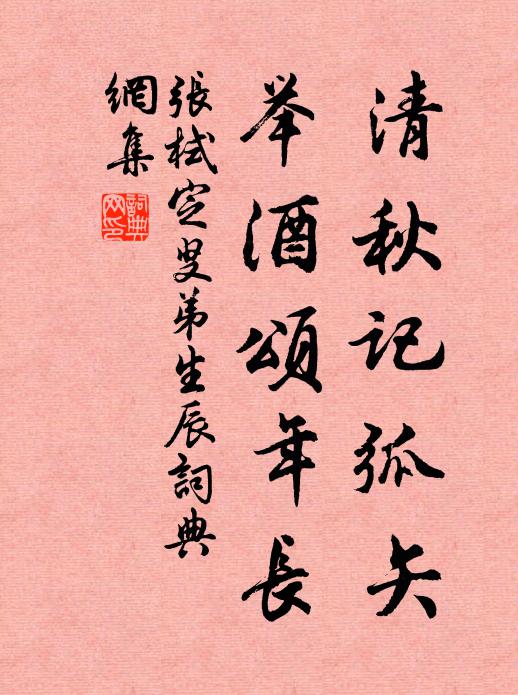 清秋记弧矢
举酒頌年長
張栻定叟弟生辰詞典
網集
詞典網印